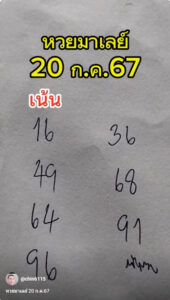 หวยมาเลย์
20 ก.ค.67
เน้น
16 36
49 68
64 91
96
@chino115
หวยมาเลย์ 20 ก.ค.67